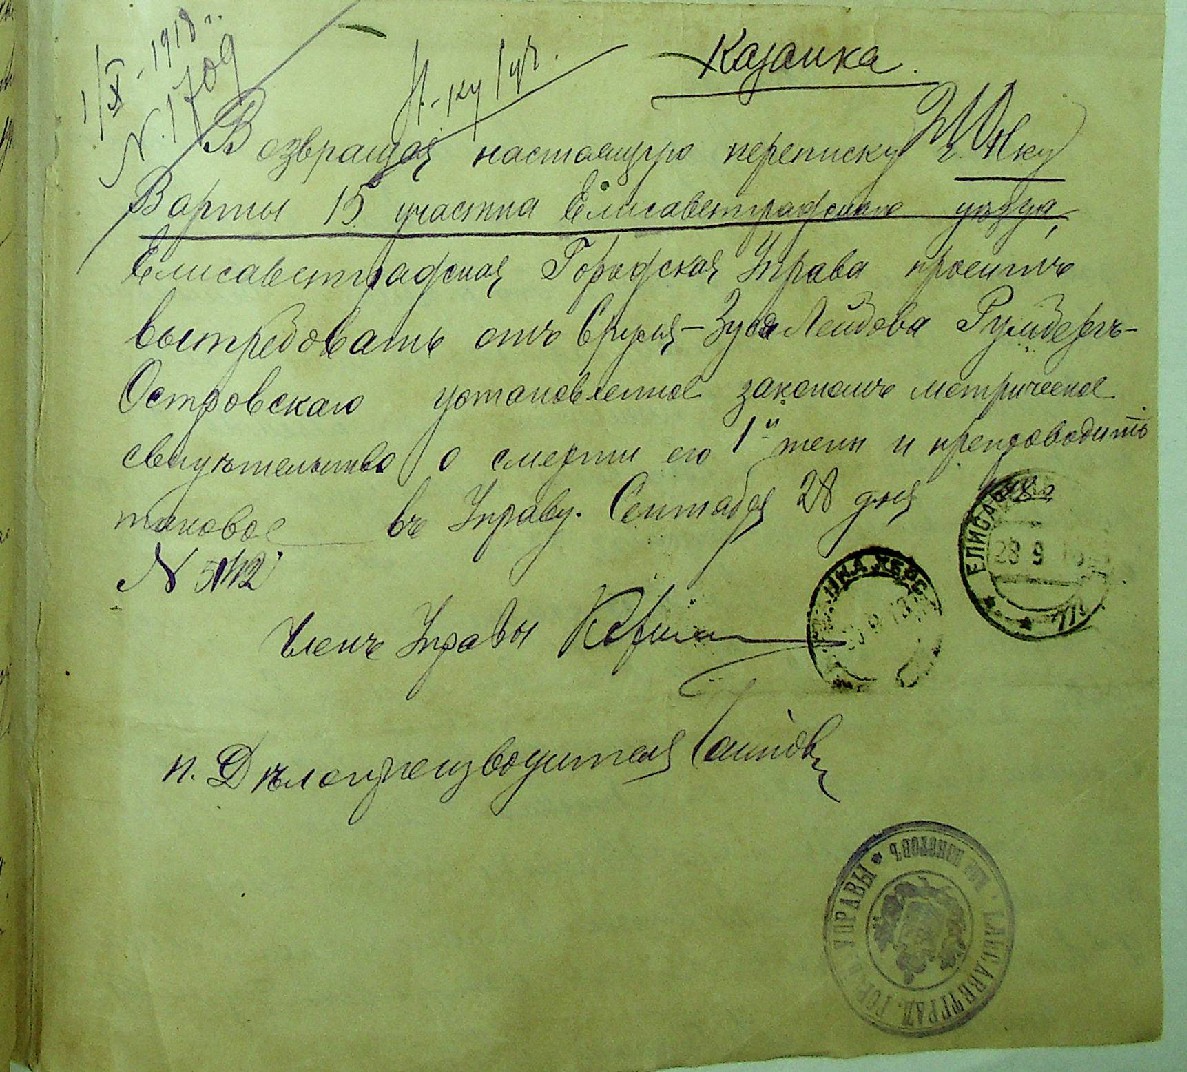 1/IX - 1918 г.
N. 1709
Казанка.
Возвращая настоящую переписку г. Н-ку
Варты 15 участка Елисаветградского уезда,
Елисаветградская Городская Управа проситъ
вытребовать отъ Лейбова
Островскаго установленное закономъ метрическое
свидѣтельство о смерти его 1й жены и препроводить
таковое въ Управу. Сентября 28 дня
N 5142
Членъ Управы
и. Дѣлопроизводителя
ЕЛИСАВЕТ
29 9
ХЕРС
ЕЛИСАВЕТГРАД. ГОР. УПРАВЫ
для пакетовъ